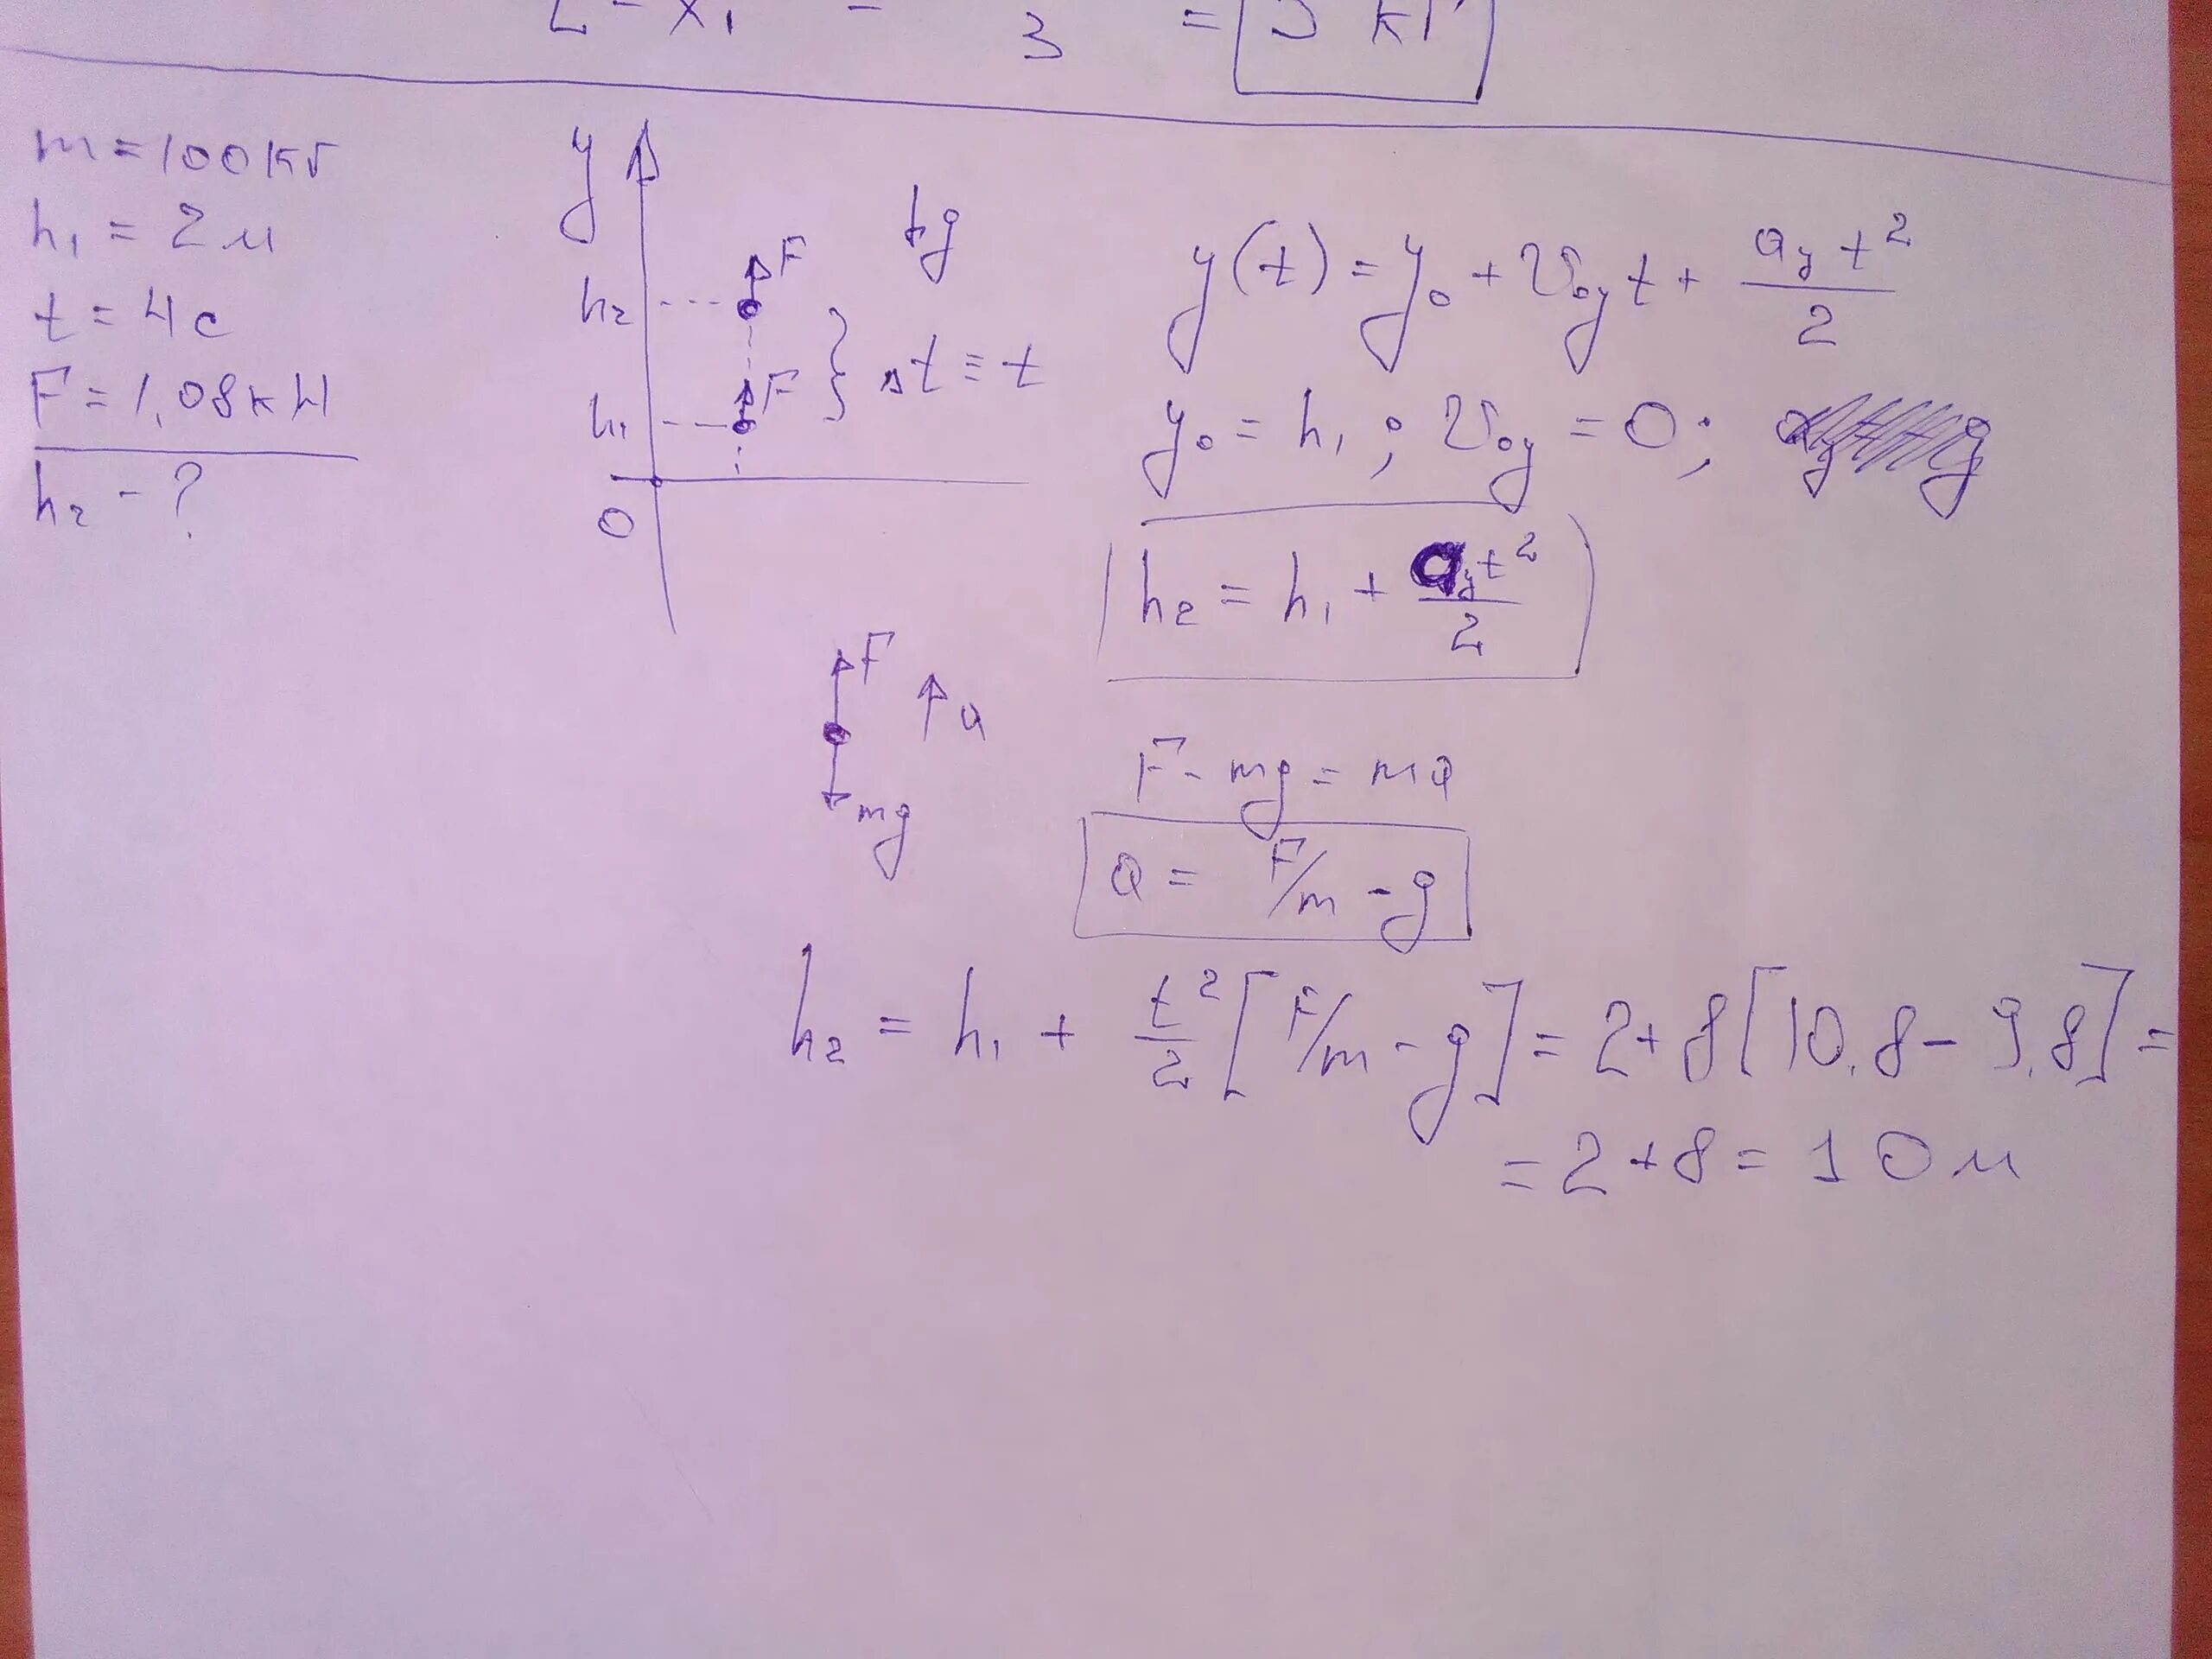 3 = кг
m = 100 кг
h₁ = 2 м
t = 4 с
F = 1,08 кН
h₂ - ?
y
g
h₂ F
h₁ F } Δt = t
0
y(t) = y₀ + v₀y t + ay t² / 2
y₀ = h₁ ; v₀y = 0 ;
h₂ = h₁ + ay t² / 2
F
a
mg
F - mg = ma
a = F/m - g
h₂ = h₁ + t²/2 [F/m - g] = 2 + 8 [10.8 - 9.8] =
= 2 + 8 = 10 м